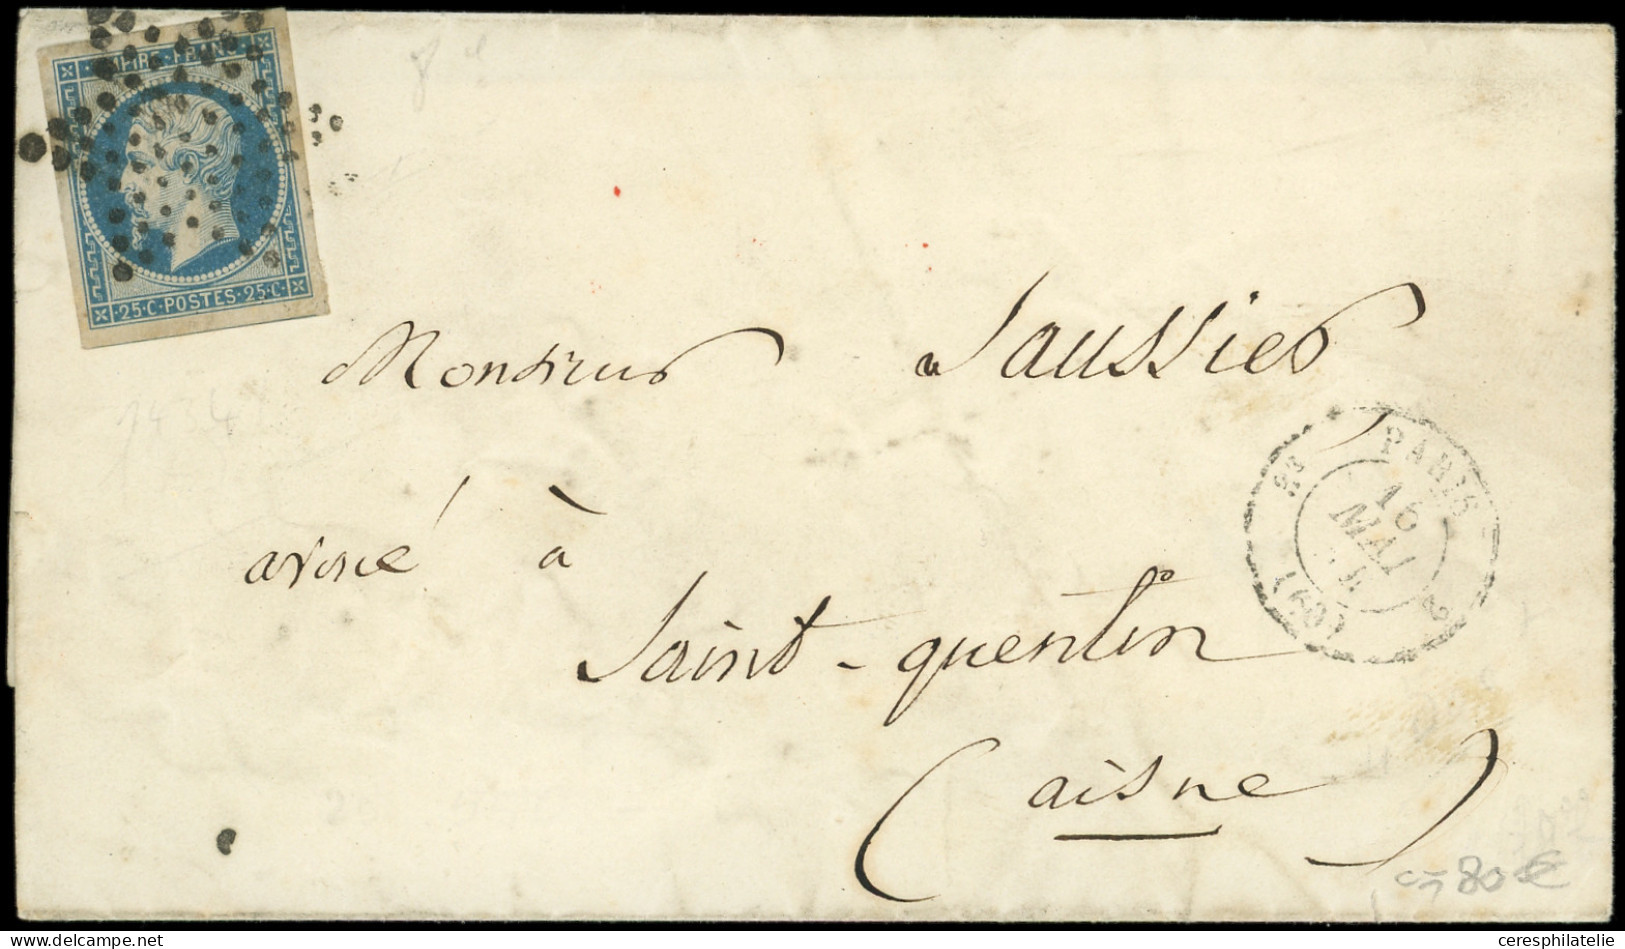 EMPIRE FRANC
25·C·POSTES·25·C·
Monsieur Saussier
avoué à
Saint-quentin
(aisne)
PARIS
16
MAI
54
(60)
80€
ceresphilatelie